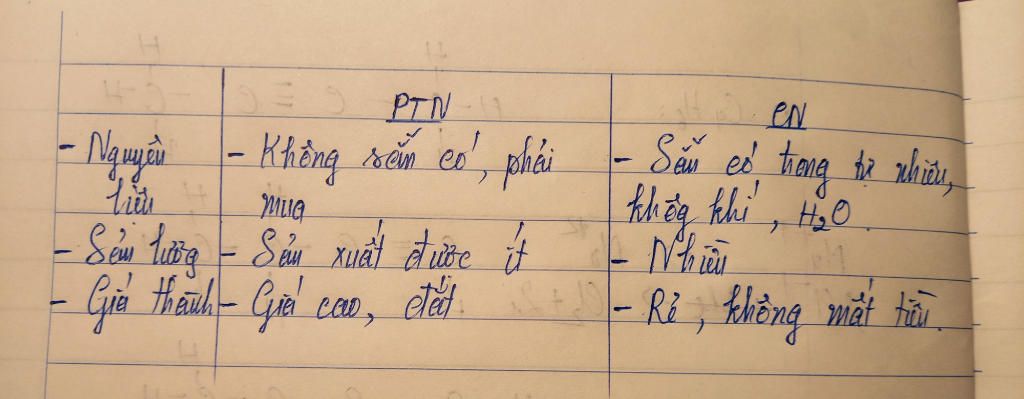 PTN
CN
- Nguyên liệu
- Không sẵn có, phải mua
- Sẵn có trong tự nhiên, không khí, H₂O.
- Sản lượng
- Sản xuất được ít
- Nhiều
- Giá thành
- Giá cao, đắt
- Rẻ, không mất tiền.